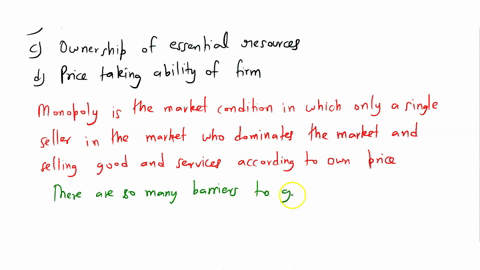 c) Ownership of essential resources
d) Price taking ability of firm
Monopoly is the market condition in which only a single
seller in the market who dominates the market and
selling good and services according to own price
There are so many barriers to g